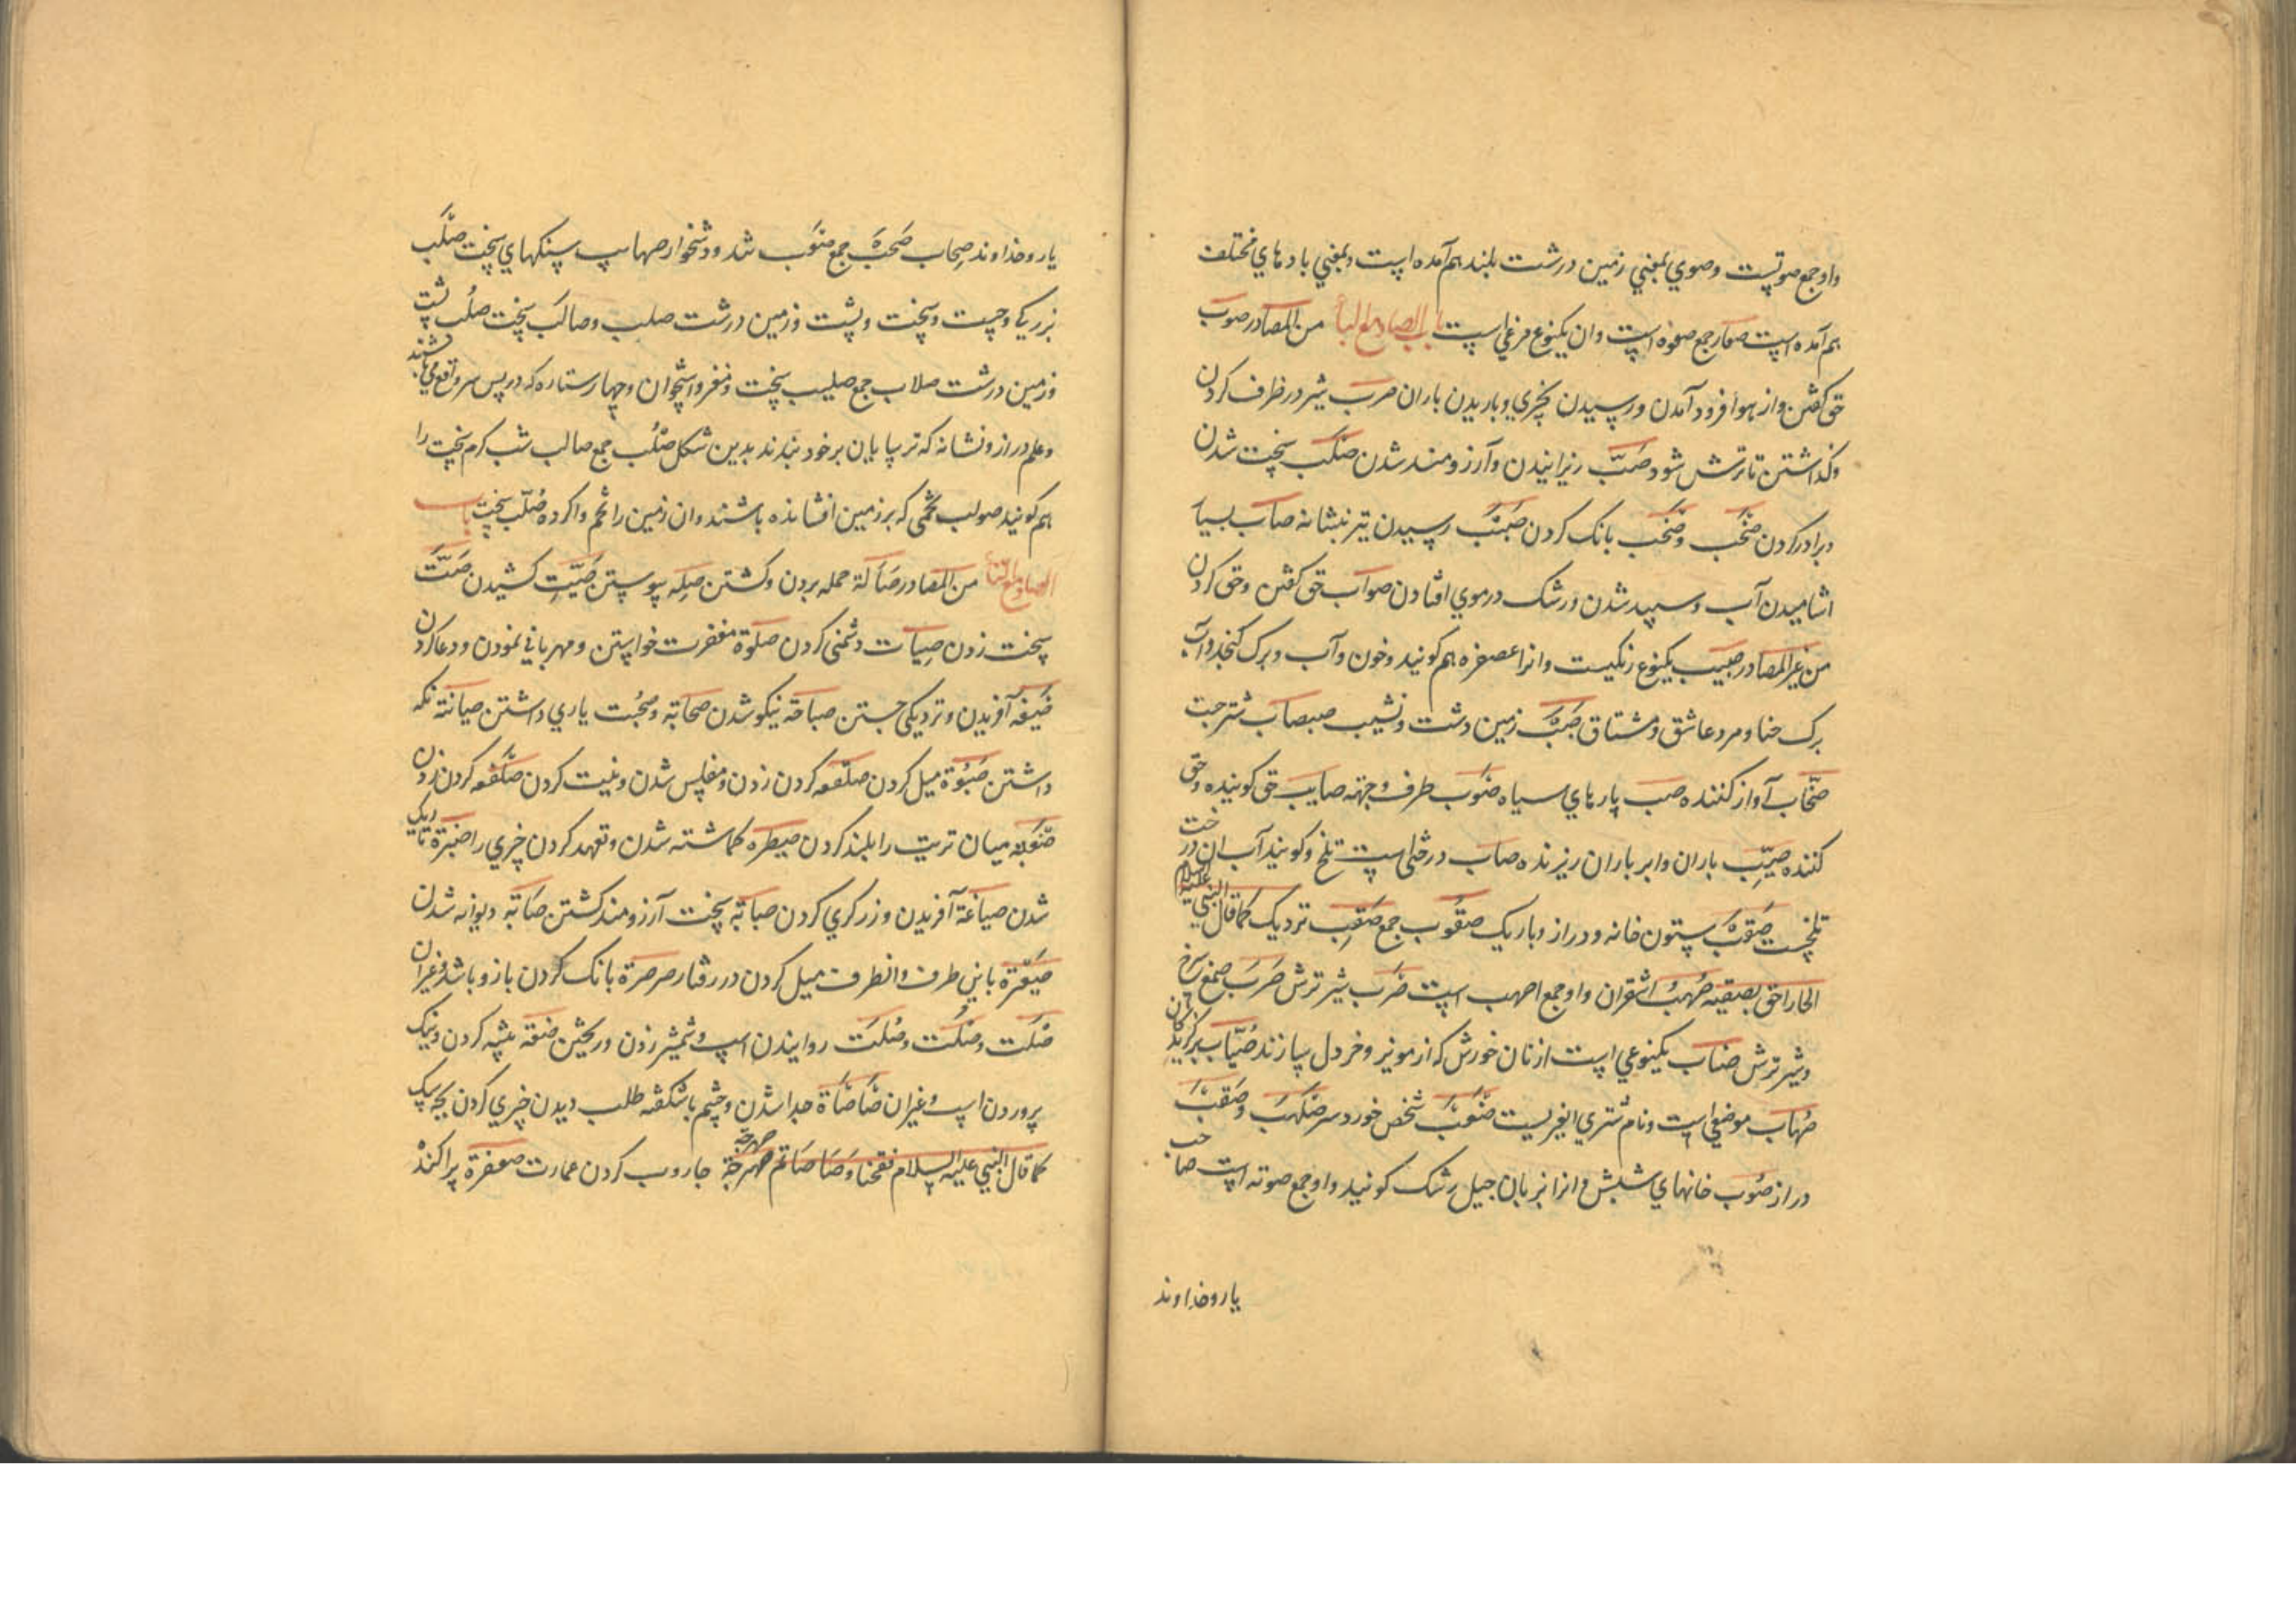 واو جمع صوتست وصوي بمعني زمين درشت بلند هم آمده است وبمعني بادهاي مختلف
هم آمده است صعار جمع صعوه است وان يكنوع مرغي است باب الصاد مع الباء من المصادر صوب
حق كفتن واز هوا فرود آمدن ورسيدن بچيزي وباريدن باران صرب شير در ظرف كردن
وكذاشتن تا ترش شود صبّ ريزانيدن وآرزومند شدن صلب سخت شدن
وبرادر كردن صخب وصخب بانك كردن رسيدن تير بنشانه صأب بسيار
اشاميدن آب وسپيد شدن ورشك در موي افتادن صواب حق كفتن وحق كردن
من غير المصادر صبيب يكنوع رنكيست وانرا عصفره هم كويند وخون وآب وبرك كنجد وآب
برك حنا ومرد عاشق ومشتاق زمين دشت ونشيب صبصاب شتر
صخّاب آواز كننده صبب پارهاي سياه صوب طرف وجهة صايب حق كوينده وحق
كننده صيّب باران وابر باران ريزنده صاب درختي است تلخ وكويند آب ان درخت
تلخست ستون خانه ودراز وباريك صقوب جمع صقب نزديك كما قال النبي عليه السلام
الجار احق بصقبه صهب اشقران واو جمع اصهب است صرب شير ترش صرب صمغ سرخ
وشير ترش صناب يكنوعي است از نان خورش كه از مويز وخردل سازند صيّاب بركزيدكان
صهاب موضعي است ونام شتري
دراز صوب خانهاي شبش وانرا بزبان جيل رشك كويند واو جمع صوبه است صاحب
يار وخداوند
يار وخداوند صحاب صحبة جمع شد ودشخوار صهاب سنكهاي سخت صلب
بزركي وچست وسخت وپشت وزمين درشت صليب وصالب سخت صلب پشت
وزمين درشت صلاب جمع صليب سخت ومغز واستخوان وچهار ستاره كه در پس سر واقع مي باشند
وعلم دراز ونشانه كه ترسايان بر خود بندند بدين شكل صلب جمع صالب تب كرم سخت را
هم كويند صولب تخمي كه بر زمين افشانده باشند وان زمين را تخم وا كرده صلّب سخت باب
الصاد مع التاء من المصادر صآلة حمله بردن وكشتن صله پيوستن كشيدن صتّ
سخت زدن دشمني كردن صلوة مغفرت خواستن ومهرباني نمودن ودعا كردن
صيغه آفريدن ونزديكي جستن صباحة نيكو شدن صحابة وصحبت ياري داشتن صيانة نكه
داشتن صبوة ميل كردن صلقعه كردن زدن ومفلس شدن ونيت كردن
ميان تريت را بلند كردن صيطره كماشته شدن وتعهد كردن چيزي را
شدن صياغة آفريدن وزركري كردن صبابة سخت آرزومند كشتن ديوانه شدن
باين طرف وانطرف ميل كردن در رفتار صرصرة بانك كردن باز وباشه وغير ان
صلت وصلت وصلت روانيدن اسب وشمشير زدن وريختن صنعة پيشه كردن ونيك
پروردن اسب وغير ان صأصأة جدا شدن وچشم باشكفته طلب ديدن چيزي كردن بچه سك
كما قال النبي عليه السلام فقحنا وصأصأتم صهرجة جاروب كردن عمارت صعفرة پراكنده